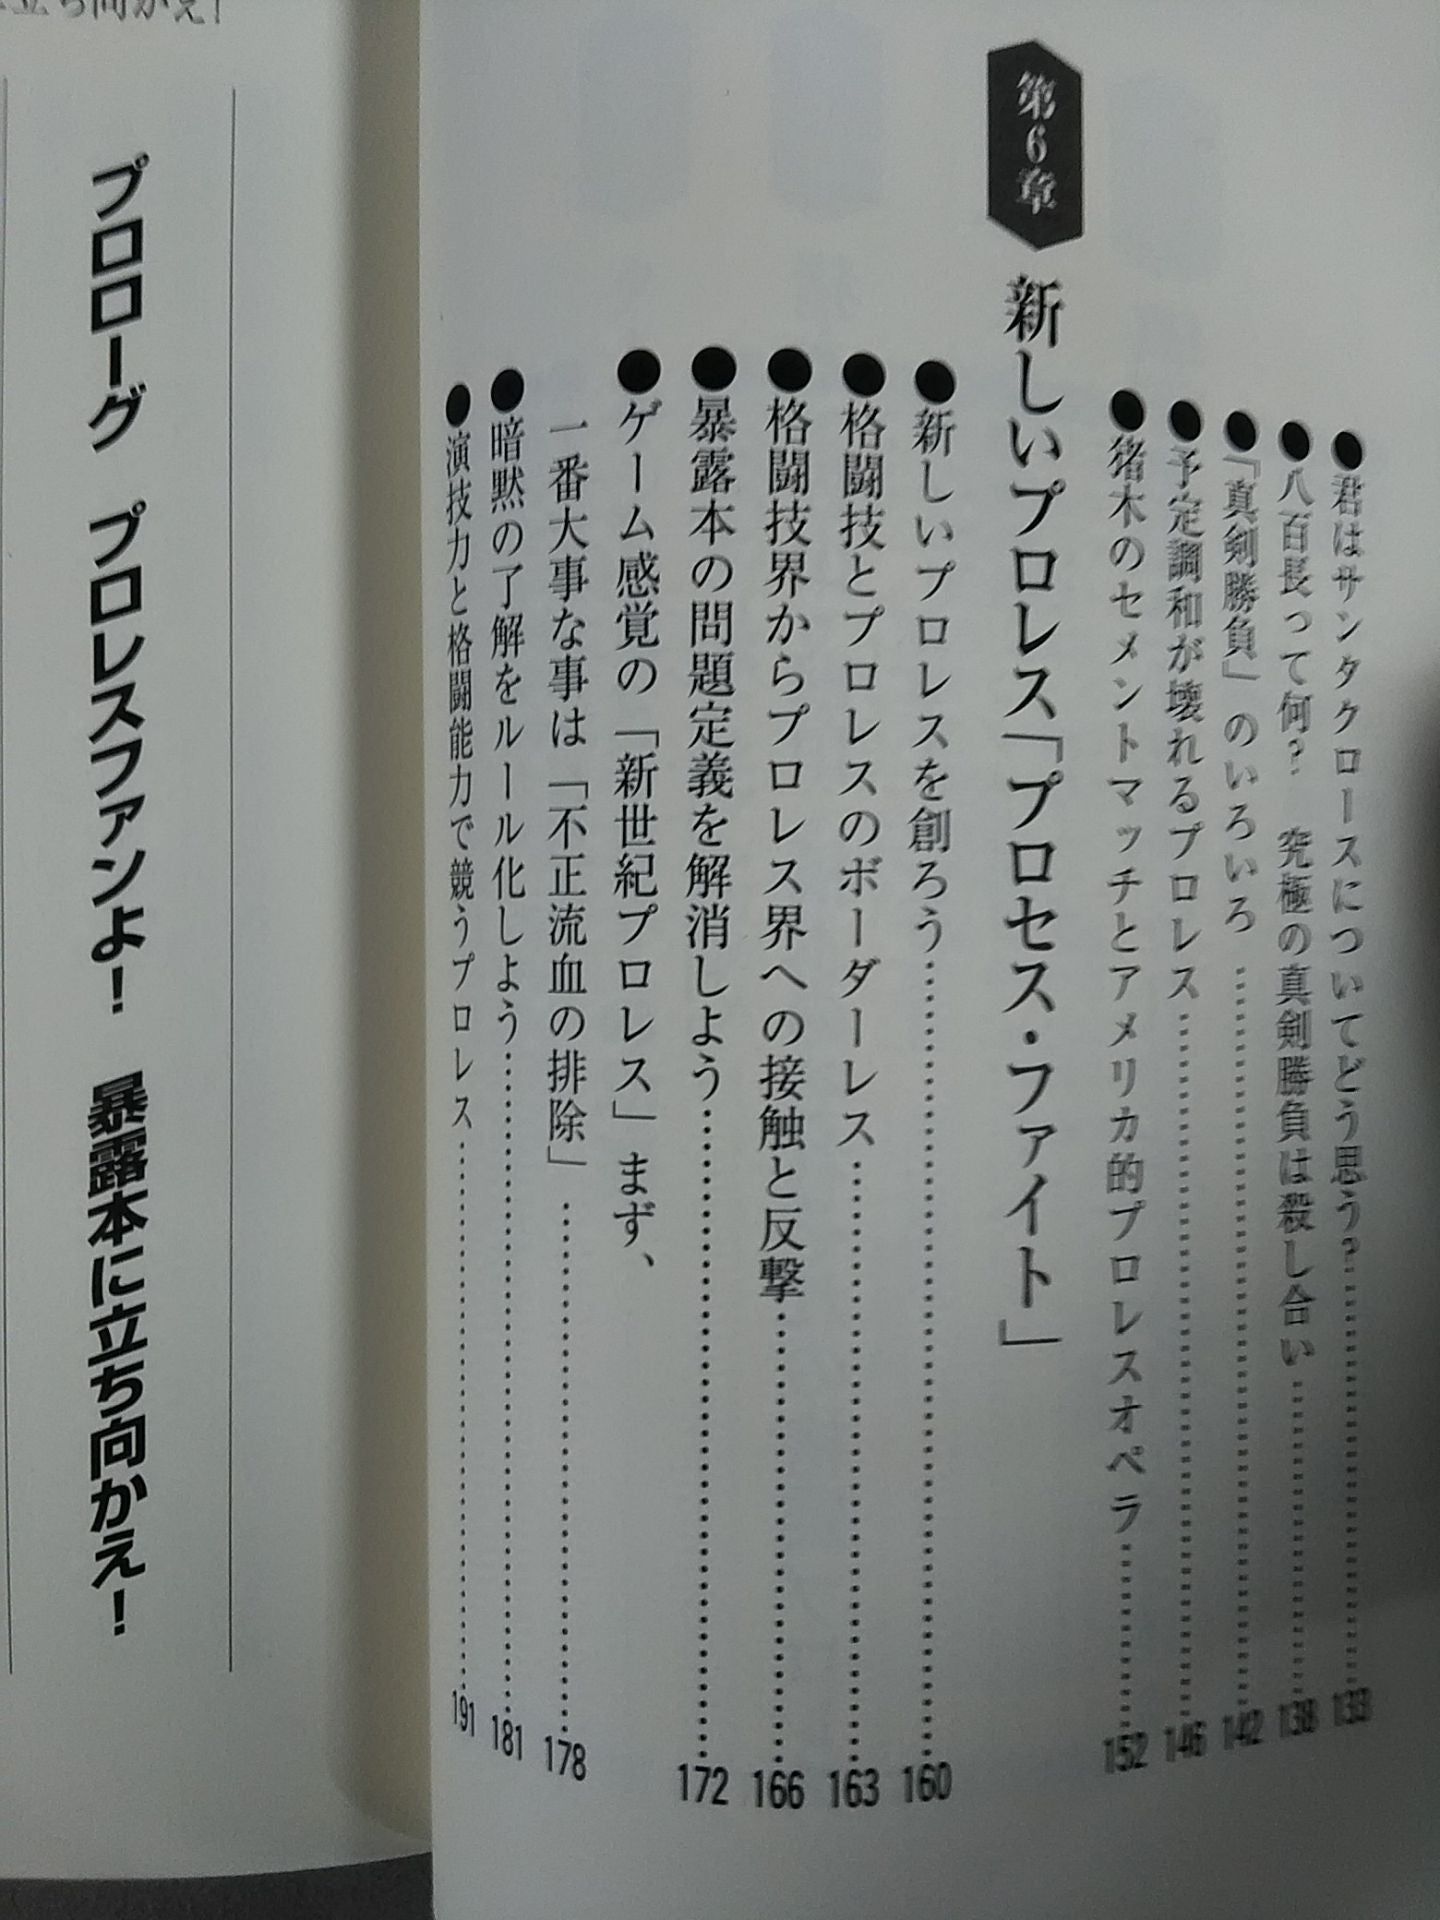 ●君はサンタクロースについてどう思う?……133
●八百長って何? 究極の真剣勝負は殺し合い……138
●「真剣勝負」のいろいろ……142
●予定調和が壊れるプロレス……146
●猪木のセメントマッチとアメリカ的プロレスオペラ……152
第6章 新しいプロレス「プロセス・ファイト」
●新しいプロレスを創ろう……160
●格闘技とプロレスのボーダーレス……163
●格闘技界からプロレス界への接触と反撃……166
●暴露本の問題定義を解消しよう……172
●ゲーム感覚の「新世紀プロレス」まず、
一番大事な事は「不正流血の排除」……178
●暗黙の了解をルール化しよう……181
●演技力と格闘能力で競うプロレス……191
プロローグ プロレスファンよ! 暴露本に立ち向かえ!
立ち向かえ!